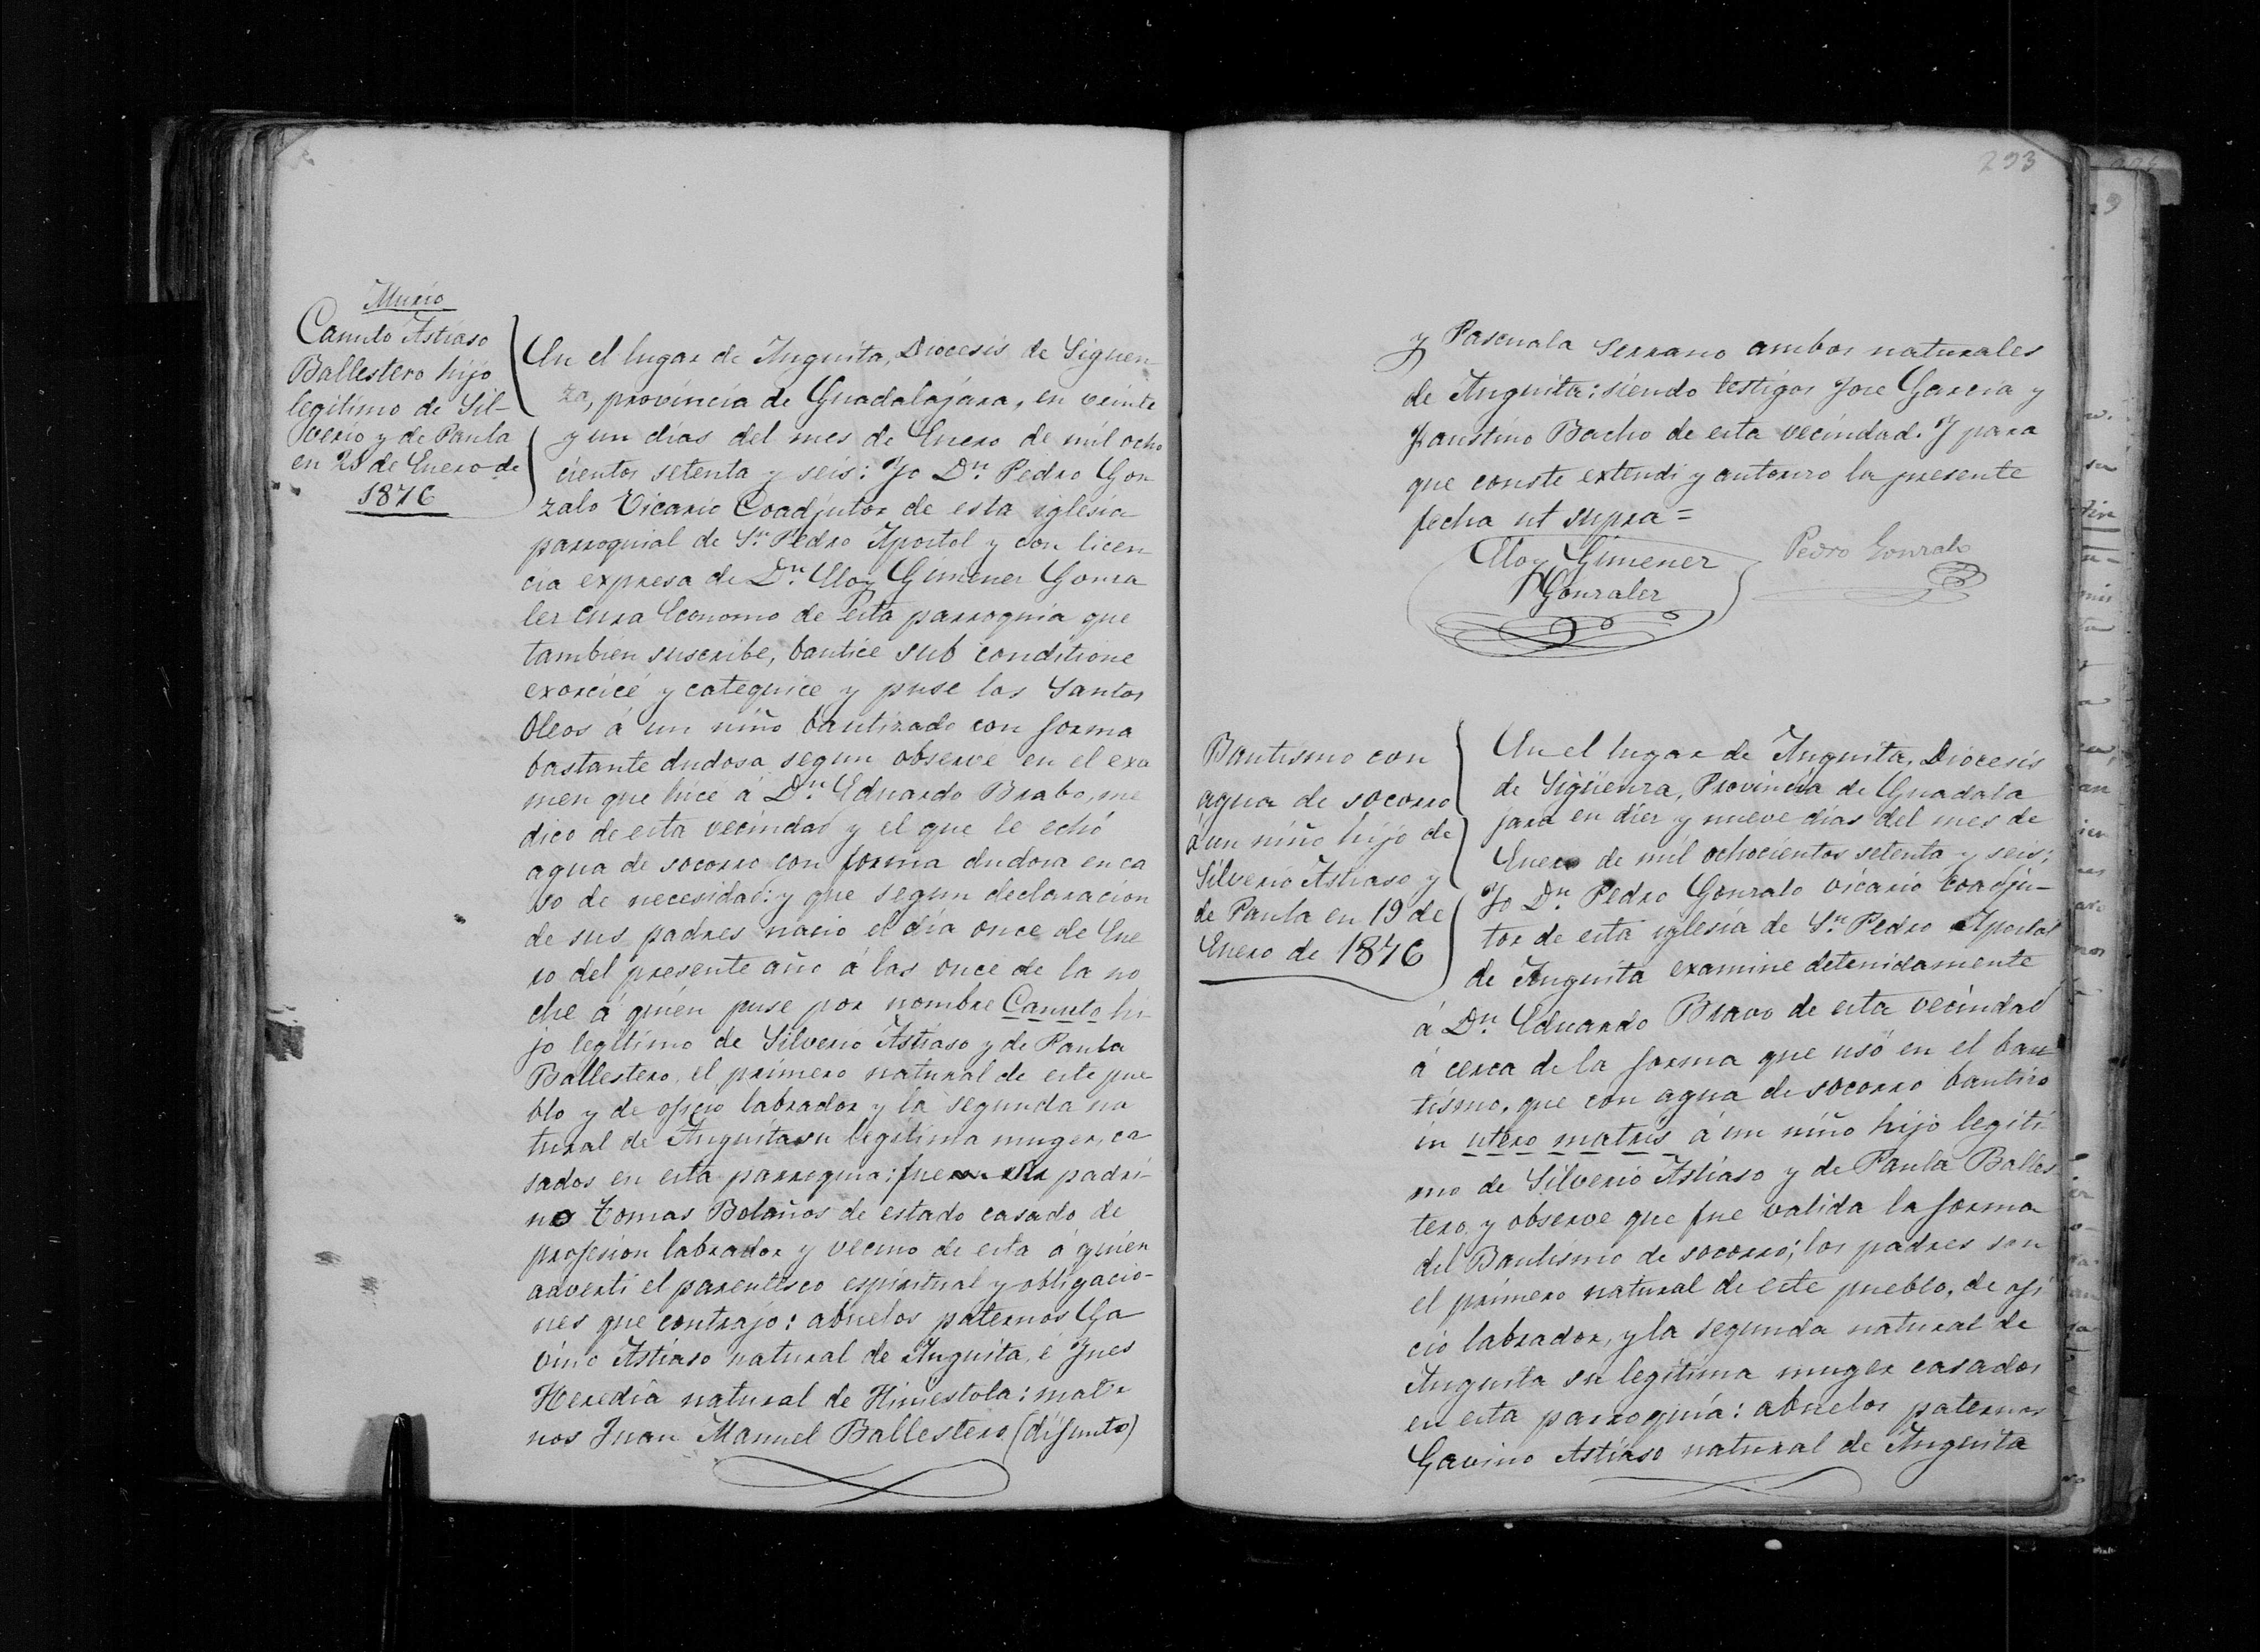 Murio
Canuto Astiaso
Ballestero hijo
legitimo de Sil-
verio y de Paula
en 21 de Enero de
1876
En el lugar de Anguita, Diocesis de Siguen
za, provincia de Guadalajara, en veinte
y un días del mes de Enero de mil ocho
cientos setenta y seis: Yo Dn. Pedro Gon
zalo Vicario Coadjutor de esta iglesia
parroquial de Sn. Pedro Apostol y con licen
cia expresa de Dn. Eloy Gimenez Gonza
lez cura Economo de esta parroquia que
tambien suscribe, bautice sub conditione
exorcicé y catequice y puse los Santos
Oleos á un niño bautizado con forma
bastante dudosa segun observe en el exa
men que hice á Dn. Eduardo Brabo, me
dico de esta vecindad y el que le echó
agua de socorro con forma dudosa en ca
so de necesidad: y que segun declaracion
de sus padres nacio el día once de Ene
ro del presente año á las once de la no
che á quien puse por nombre Canuto hi
jo legitimo de Silverio Astiaso y de Paula
Ballestero, el primero natural de este pue
blo y de oficio labrador y la segunda na
tural de Anguita su legitima muger, ca
sados en esta parroquia: fue su padri-
no Tomas Bolaños de estado casado de
profesion labrador y vecino de esta á quien
adverti el parentesco espiritual y obligacio-
nes que contrajo: abuelos paternos Ga
vino Astiaso natural de Anguita, é Ynes
Heredia natural de Hiniestola: mater
nos Juan Manuel Ballestero (difunto)
293
y Pascuala Serrano ambos naturales
de Anguita: siendo testigos Jose Garcia y
Faustino Bacho de esta vecindad. Y para
que conste extendi y autorizo la presente
fecha ut supra=
Eloy Gimenez
Gonzalez
Pedro Gonzalo
Bautismo con
agua de socorro
á un niño hijo de
Silverio Astiaso y
de Paula en 19 de
Enero de 1876
En el lugar de Anguita, Diocesis
de Sigüenza, Provincia de Guadala
jara en diez y nueve días del mes de
Enero de mil ochocientos setenta y seis;
Yo Dn. Pedro Gonzalo vicario coadju-
tor de esta iglesia de Sn. Pedro Apostol
de Anguita examine detenidamente
á Dn. Eduardo Bravo de esta vecindad
á cerca de la forma que usó en el bau
tismo, que con agua de socorro bautizo
in utero matris á un niño hijo legiti
mo de Silverio Astiaso y de Paula Balles
tero, y observe que fue valida la forma
del Bautismo de socorro; los padres son
el primero natural de este pueblo, de ofi
cio labrador, y la segunda natural de
Anguita su legitima muger casados
en esta parroquia: abuelos paternos
Gavino Astiaso natural de Anguita